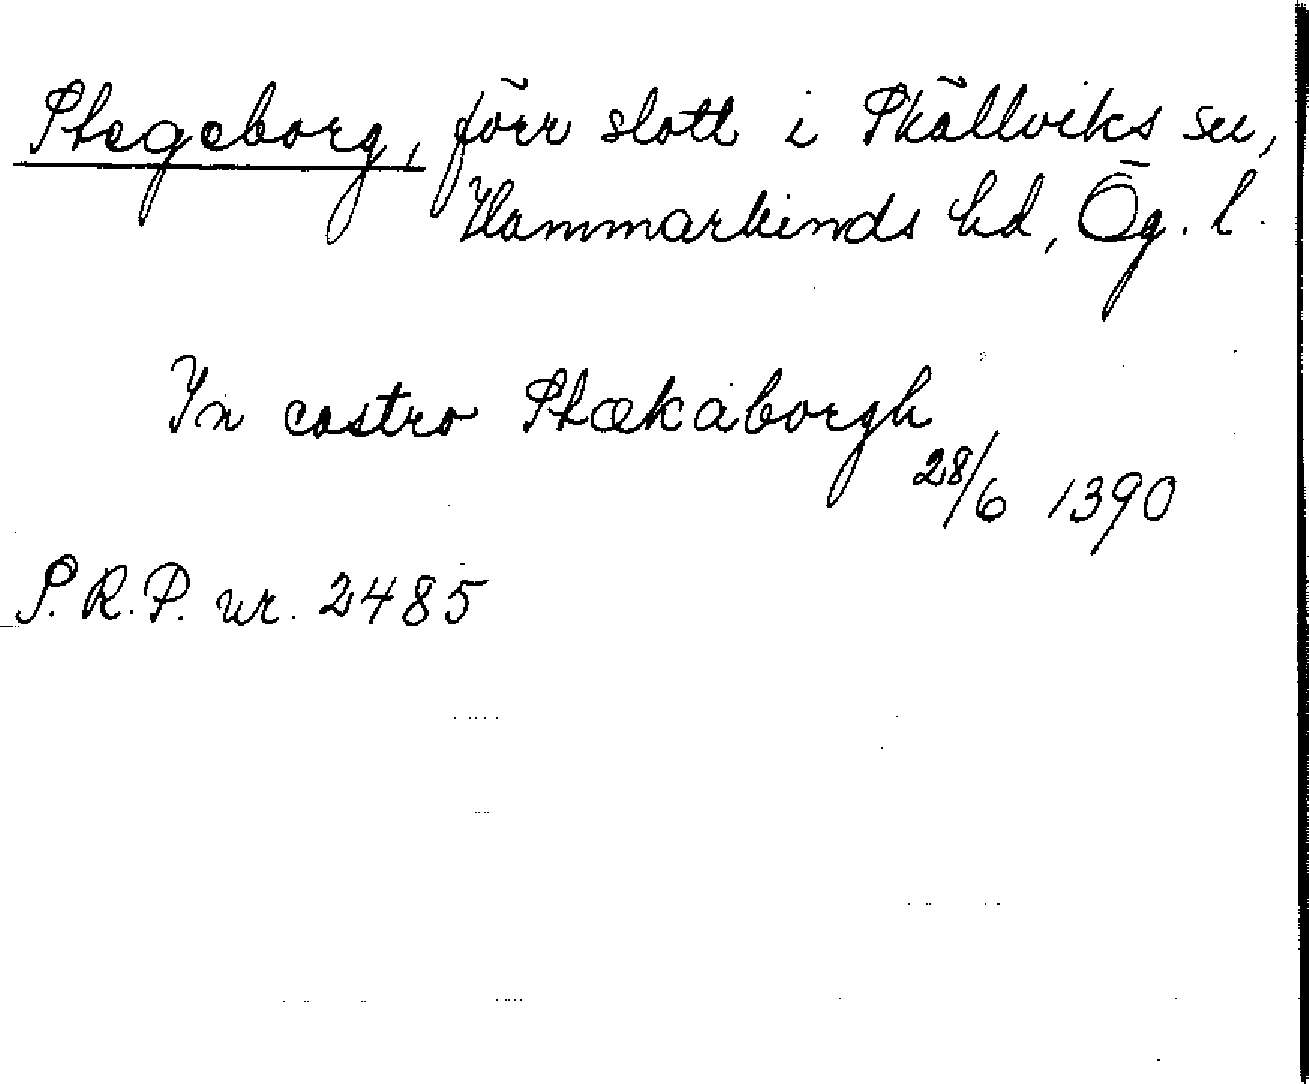 Stegeborg, förr slott i Skällviks sn,
Hammarkinds hd, Ög. l.
In castro Stækaborgh
28/6 1390
S.R.P. nr. 2485